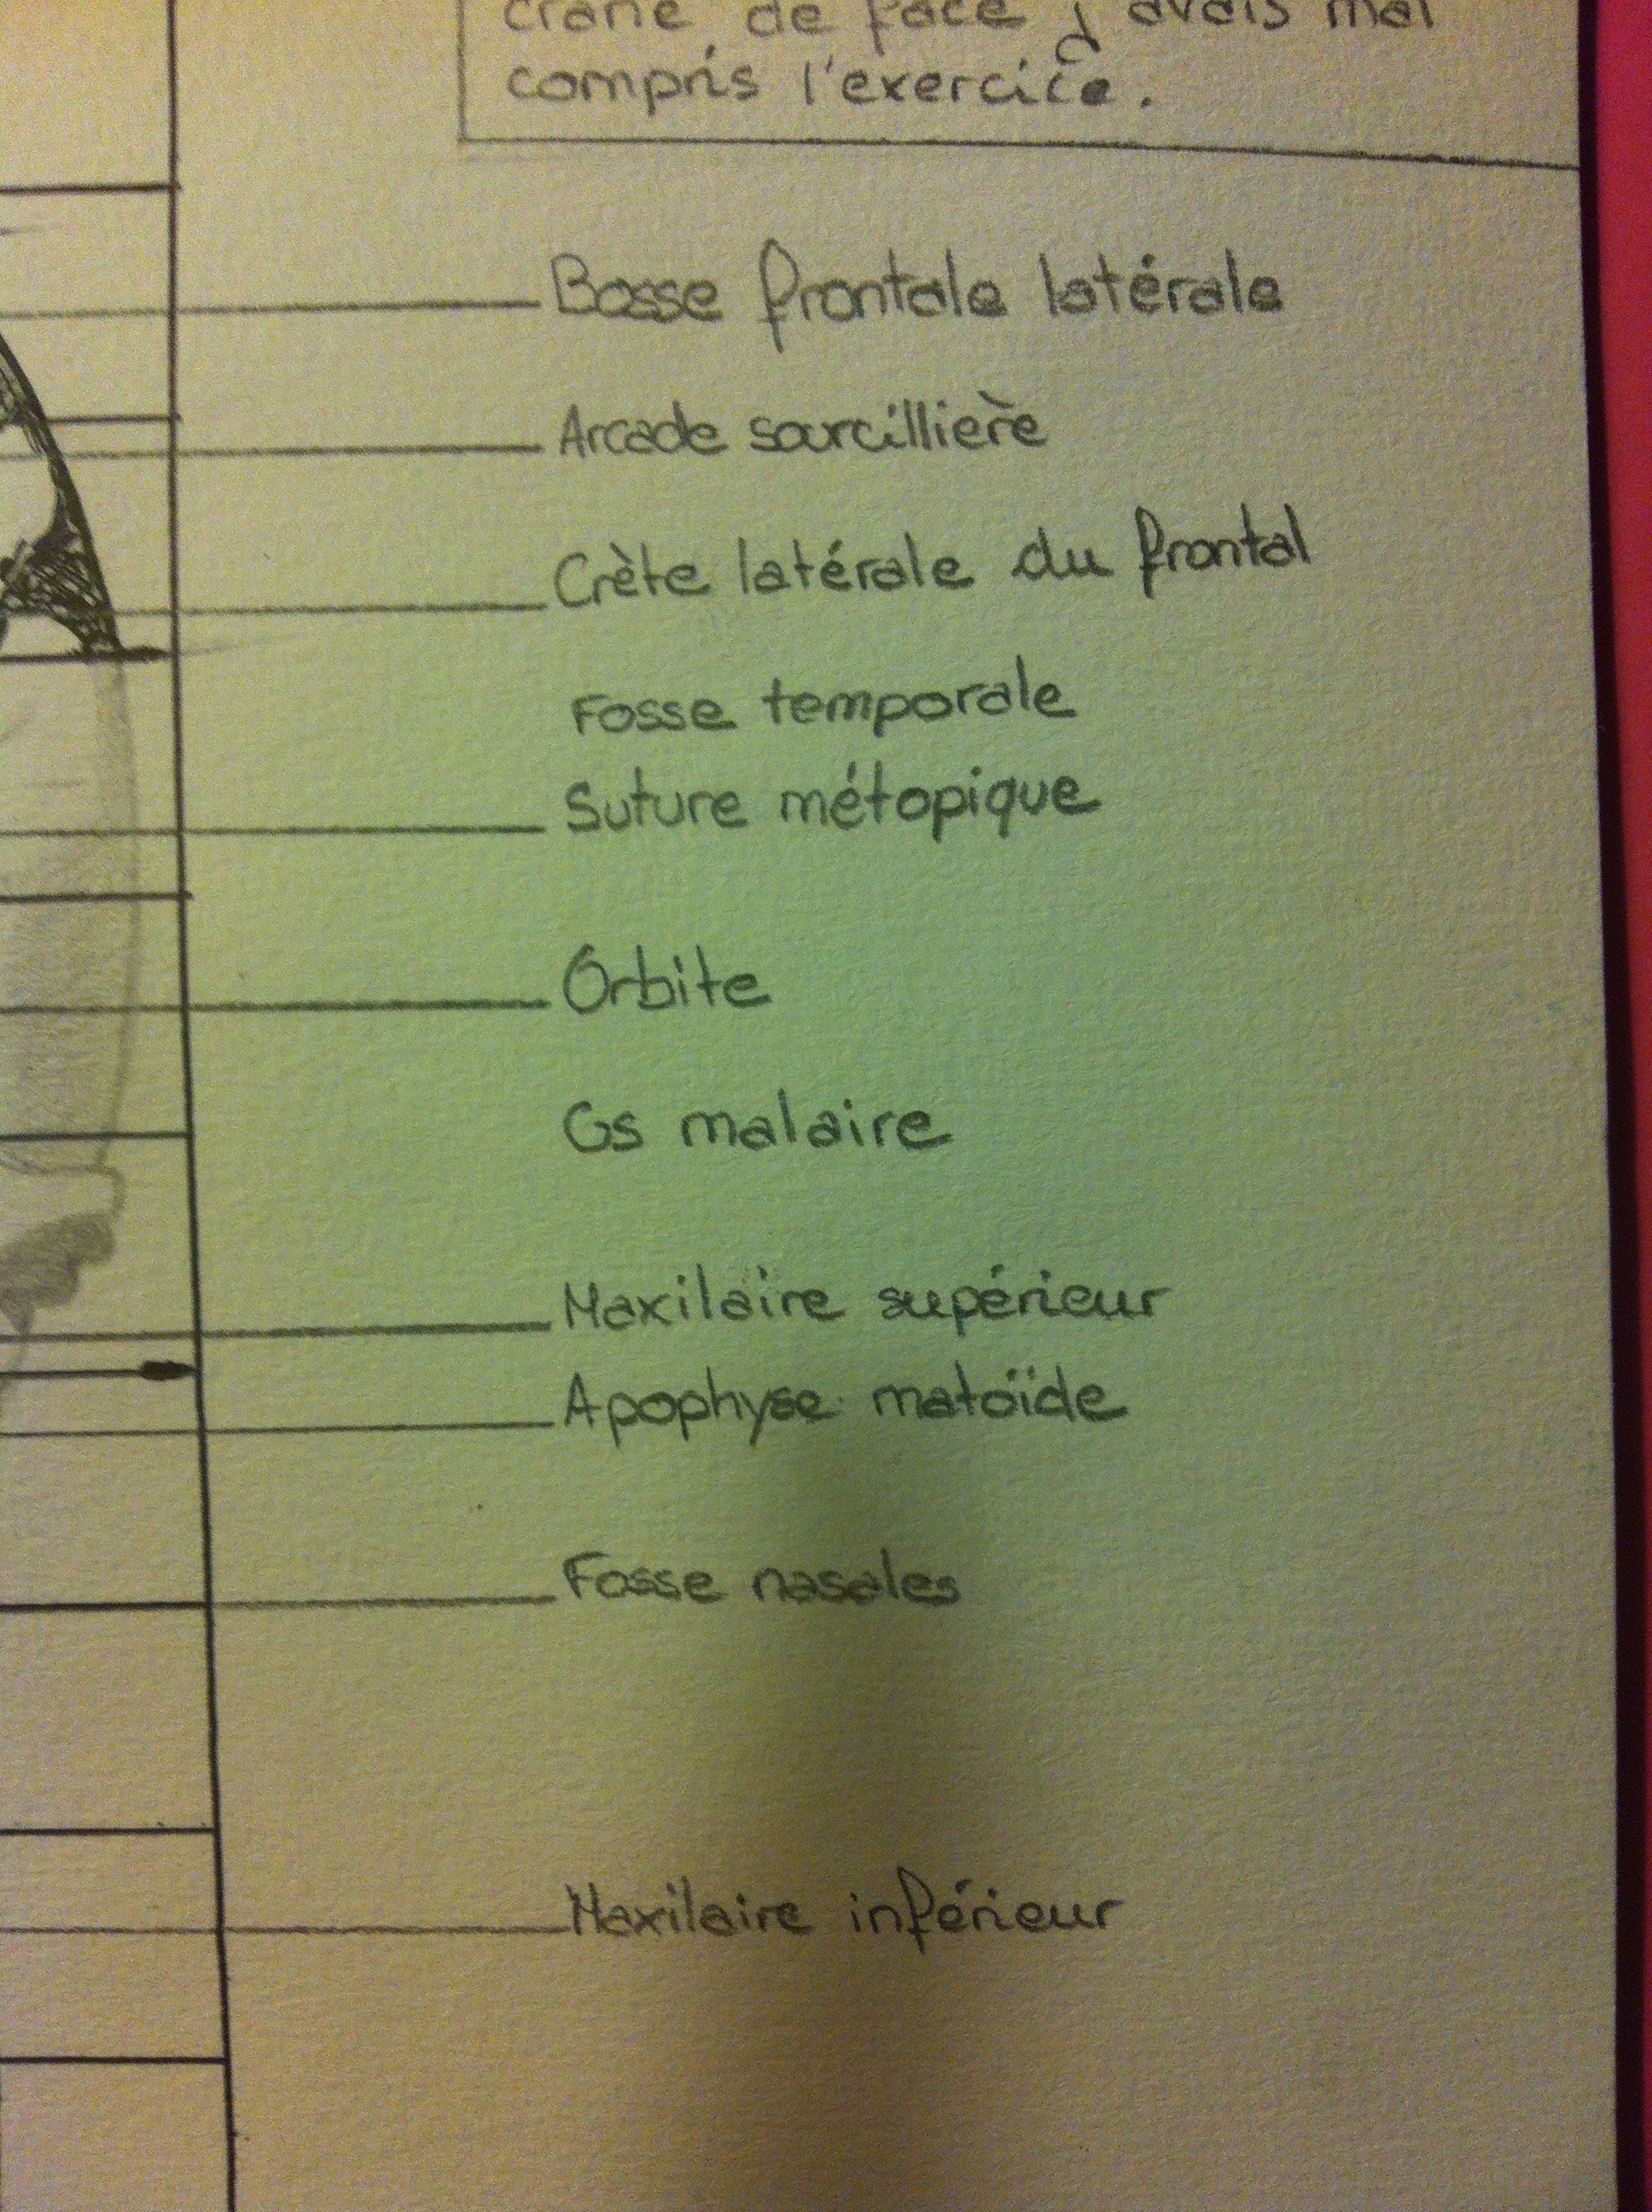 crâne de face j'avais mal
compris l'exercice.
Bosse frontale latérale
Arcade sourcillière
Crète latérale du frontal
Fosse temporale
Suture métopique
Orbite
Os malaire
Maxilaire supérieur
Apophyse matoïde
Fosse nasales
Maxilaire inférieur